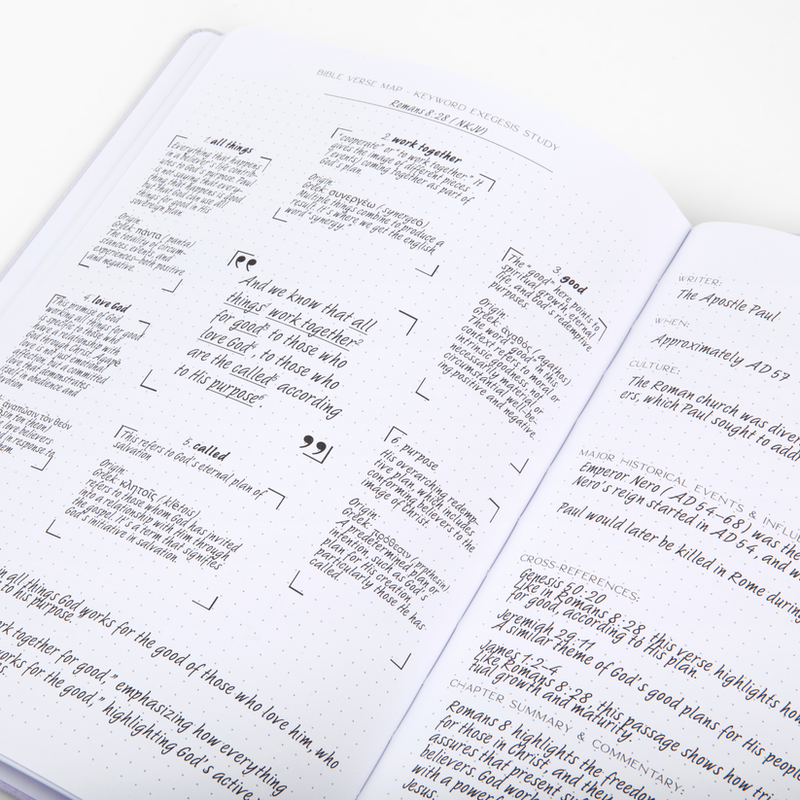 BIBLE VERSE MAP - KEYWORD EXEGESIS STUDY
Romans 8:28 (NKJV)
1. all things
Everything that happens
in a believer's life contrib-
utes to God's purpose. Paul
is not saying that every-
thing that happens is good
but that God can use all
things for good in His
sovereign plan.
Origin:
Greek: πάντα (panta)
The totality of circum-
stances, events, and
experiences—both positive
and negative.
2. work together
"cooperate" or "to work together." It
gives the image of different pieces
(events) coming together as part of
God's plan.
Origin:
Greek: συνεργέω (synergeō)
multiple things combine to produce a
result. It's where we get the english
word "synergy."
3. good
The "good" here points to
spiritual growth, eternal
life, and God's redemptive
purposes.
Origin:
Greek: ἀγαθός (agathos)
The word "good" in this
context refers to moral or
intrinsic goodness, not
necessarily material or
circumstantial well-be-
ing positive and negative.
4. love God
This promise of God
working all things for good
is specific to those who
have a relationship with
God through Christ.
is not just emotional
affection but a committed
love that demonstrates
obedience and
ἀγαπῶσιν τὸν θεόν
love believers
in response to
them.
And we know that all
things¹ work together²
for good³ to those who
love God⁴, to those who
are the called⁵ according
to His purpose⁶.
5. called
This refers to God's eternal plan of
salvation.
Origin:
Greek: κλητοῖς (kletois)
refers to those whom God has invited
into a relationship with Him through
the gospel. It's a term that signifies
God's initiative in salvation.
6. purpose
His overarching redemp-
tive plan, which includes
conforming believers to the
image of Christ.
Origin:
Greek: πρόθεσιν (prothesin)
A predetermined plan or
intention, such as God's
plan for His creation,
particularly those He has
called.
in all things God works for the good of those who love him, who
to his purpose
work together for good," emphasizing how everything
works for the good," highlighting God's active
WRITER:
The Apostle Paul
WHEN:
Approximately AD 57
CULTURE:
The Roman church was
ers, which Paul sought to
MAJOR HISTORICAL EVENTS &
Emperor Nero (AD 54-68) was the
Nero's reign started in AD 54, and
Paul would later be killed in Rome during
CROSS-REFERENCES:
Genesis 50:20
Like in Romans 8:28, this verse highlights
for good, according to His plan.
Jeremiah 29:11
A similar theme of God's good plans for His people
James 1:2-4
Like Romans 8:28, this passage shows how
tual growth and maturity.
CHAPTER SUMMARY & COMMENTARY:
Romans 8 highlights the freedom
for those in Christ, and they
assures that present
believers. God
with a powerful
Jesus.